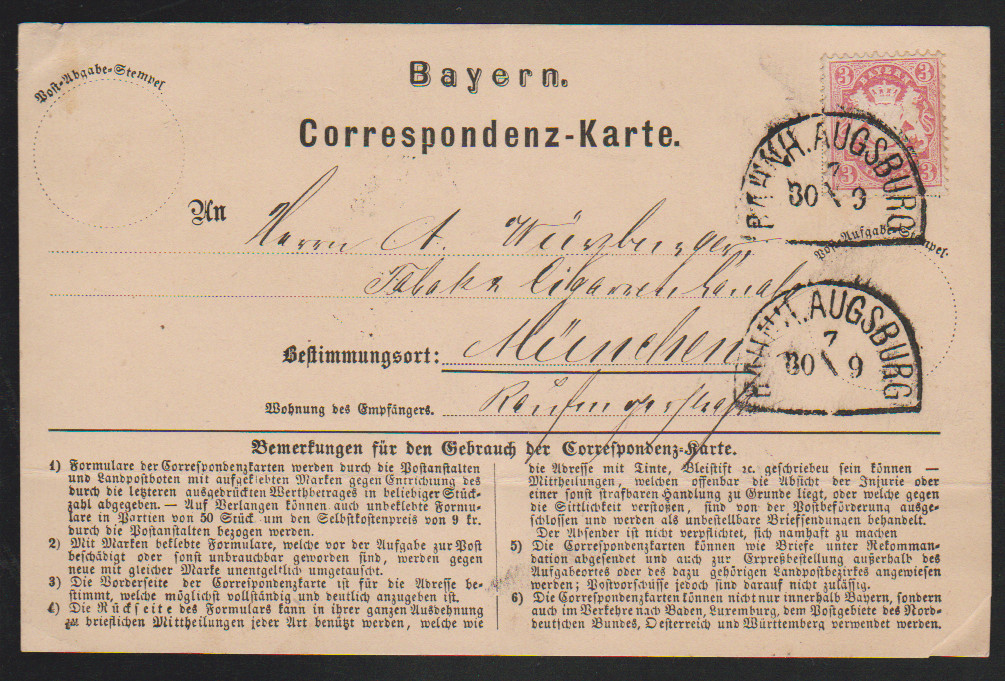 Bayern.
Correspondenz-Karte.
Post-Abgabe-Stempel
3 BAYERN 3
3 3
BAHNH. AUGSBURG
7
30 9
Post-Aufgabe-Stempel.
An Herrn A. Würzburger
Tabak & Cigarrenhandlg
BAHNH. AUGSBURG
7
30 9
Bestimmungsort: München
Wohnung des Empfängers. Kaufingerstraße
Bemerkungen für den Gebrauch der Correspondenz-Karte.
1) Formulare der Correspondenzkarten werden durch die Postanstalten
und Landpostboten mit aufgeklebten Marken gegen Entrichtung des
durch die letzteren ausgedrückten Werthbetrages in beliebiger Stück-
zahl abgegeben. — Auf Verlangen können auch unbeklebte Formu-
lare in Partien von 50 Stück um den Selbstkostenpreis von 9 kr.
durch die Postanstalten bezogen werden.
2) Mit Marken beklebte Formulare, welche vor der Aufgabe zur Post
beschädigt oder sonst unbrauchbar geworden sind, werden gegen
neue mit gleicher Marke unentgeltlich umgetauscht.
3) Die Vorderseite der Correspondenzkarte ist für die Adresse be-
stimmt, welche möglichst vollständig und deutlich anzugeben ist.
4) Die Rückseite des Formulars kann in ihrer ganzen Ausdehnung
zu brieflichen Mittheilungen jeder Art benützt werden, welche wie
die Adresse mit Tinte, Bleistift ꝛc. geschrieben sein können —
Mittheilungen, welchen offenbar die Absicht der Injurie oder
einer sonst strafbaren Handlung zu Grunde liegt, oder welche gegen
die Sittlichkeit verstoßen, sind von der Postbeförderung ausge-
schlossen und werden als unbestellbare Briefsendungen behandelt.
Der Absender ist nicht verpflichtet, sich namhaft zu machen
5) Die Correspondenzkarten können wie Briefe unter Rekomman-
dation abgesendet und auch zur Expreßbestellung außerhalb des
Aufgabeortes oder des dazu gehörigen Landpostbezirks angewiesen
werden; Postvorschüsse jedoch sind darauf nicht zulässig.
6) Die Correspondenzkarten können nicht nur innerhalb Bayern, sondern
auch im Verkehre nach Baden, Luxemburg, dem Postgebiete des Nord-
deutschen Bundes, Oesterreich und Württemberg verwendet werden.